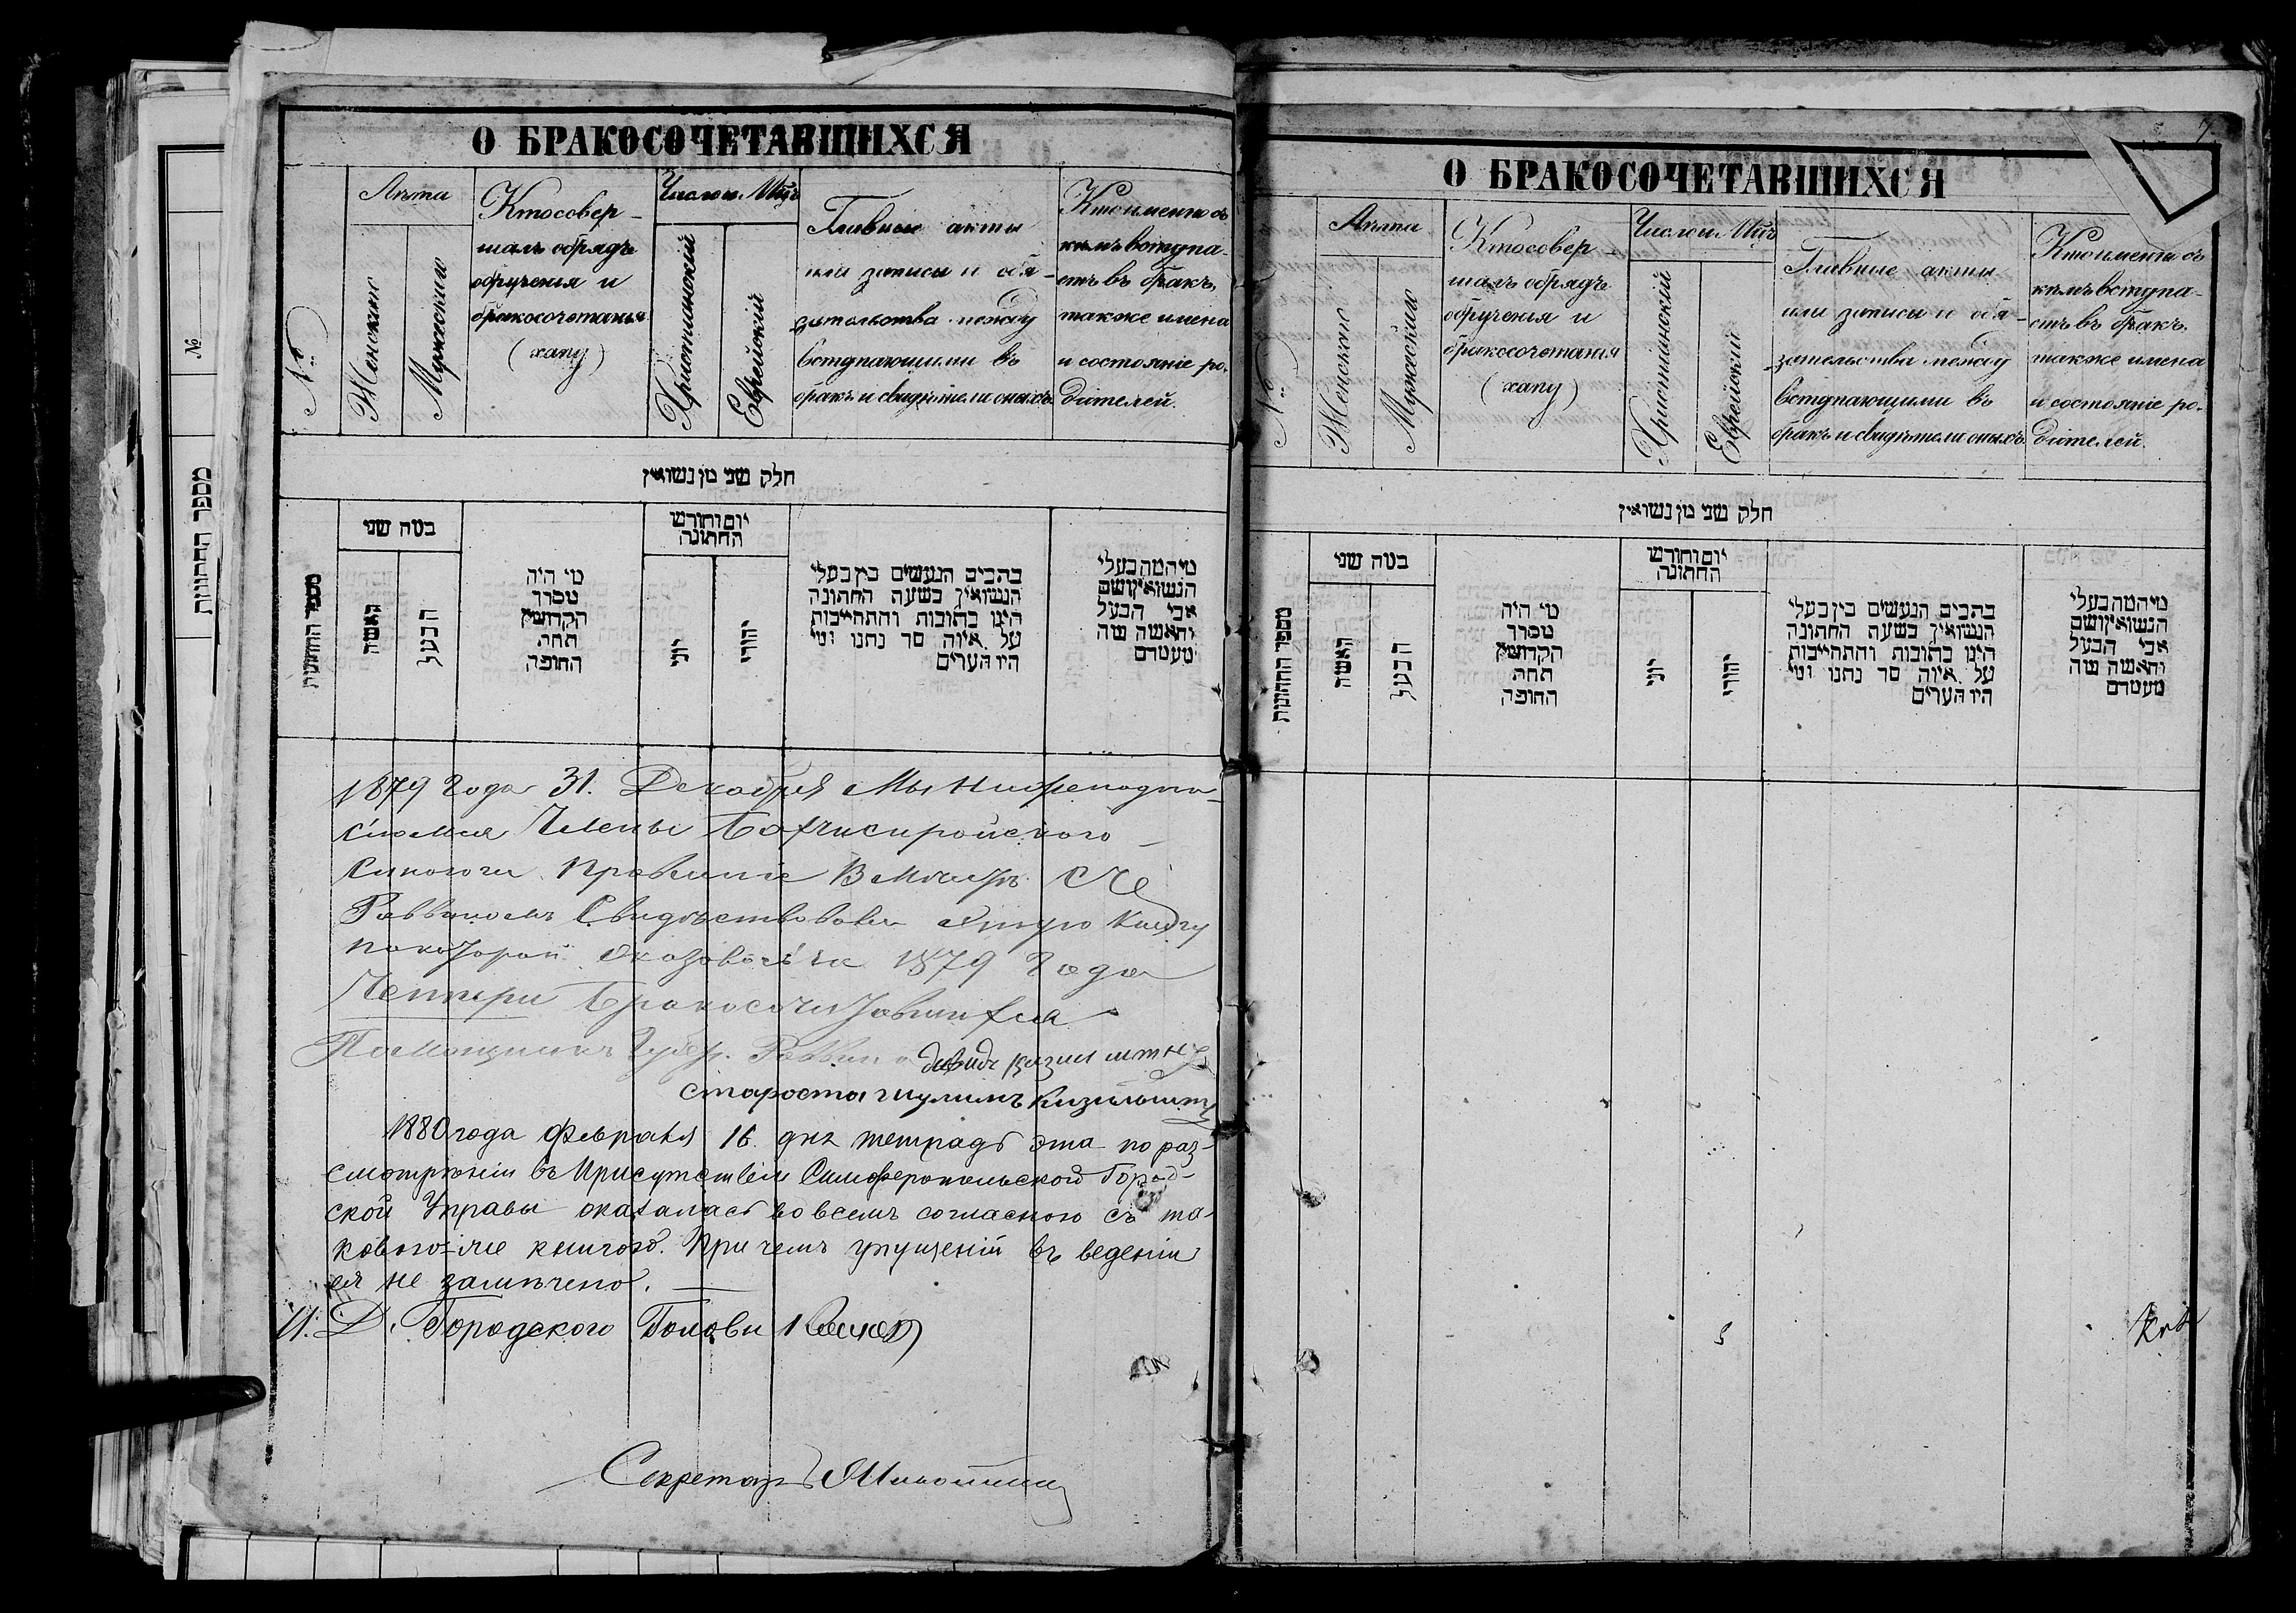 О БРАКОСОЧЕТАВШИХСЯ
№
Лѣта
Женскаго
Мужескаго
Кто совер-
шалъ обрядъ
обрученія и
бракосочетанія
(хапу)
Число и Мцъ
Христіанскій
Еврейскій
Главные акты
или записи и обя-
зательства между
вступающими въ
бракъ и свидѣтели оныхъ.
Кто именно съ
кѣмъ вступа-
етъ въ бракъ,
также имена
и состояніе ро-
дителей.
חלק שני מן נשואין
מספר החתונות
במה שני
האשה
הבעל
מי היה
מסדר
הקדושין
תחת
החופה
יום וחודש
החתונה
יוני
יהודי
כתבים הנעשים בין בעלי
הנשואין בשעת החתונה
היינו כתובות והתחייבות
על איזה סך נתנו ומי
היו הערים
מי המה בעלי
הנשואין ושם
אבי הבעל
והאשה ומה
מעמדם
1879 года 31. Декабря Мы Нижеподпи-
Члены Бахчисиройского
Синогоги Провленіе Вместѣ С Че
Раввиномъ Свидѣтствовали Эттую Книгу
покоторой Оказовоси 1879 Года
Четыри Бракосочитавшихся
Помощникъ Губер. Раввина давидъ
староста шулимъ Кизильштей
1880 года Февраля 16 дня тетрадь эта по раз-
смотрѣніи въ Присутствіи Симферопольской Город-
ской Управы оказалась во всемъ согласною съ та-
ковою-же книгою. При чемъ упущеній въ веденіи
ея не замѣчено.
И. Д. Городского Головы
Секретарь
№
מספר החתונות
7.
О БРАКОСОЧЕТАВШИХСЯ
№
Лѣта
Женскаго
Мужескаго
Кто совер-
шалъ обрядъ
обрученія и
бракосочетанія
(хапу)
Число и Мцъ
Христіанскій
Еврейскій
Главные акты
или записи и обя-
зательства между
вступающими въ
бракъ и свидѣтели оныхъ.
Кто именно съ
кѣмъ вступа-
етъ въ бракъ,
также имена
и состояніе ро-
дителей.
חלק שני מן נשואין
מספר החתונות
במה שני
האשה
הבעל
מי היה
מסדר
הקדושין
תחת
החופה
יום וחודש
החתונה
יוני
יהודי
כתבים הנעשים בין בעלי
הנשואין בשעת החתונה
היינו כתובות והתחייבות
על איזה סך נתנו ומי
היו הערים
מי המה בעלי
הנשואין ושם
אבי הבעל
והאשה ומה
מעמדם